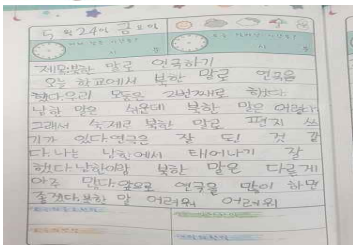 5 월 24 일 금 요일
시 분
시 분
제목:북한 말로 연극하기
오늘 학교에서 북한 말로 연극을
했다.우리 모둠은 2번째로 했다.
남한 말은 쉬운데 북한 말은 어렵다.
그래서 숙제로 북한 말로 편지 쓰
기가 있다.연극은 잘 된 것 같
다.나는 남한에서 태어나기 잘
했다.남한이랑 북한 말은 다른게
아주 많다.앞으로 연극을 많이 하면
좋겠다.북한 말 어려워 어려워